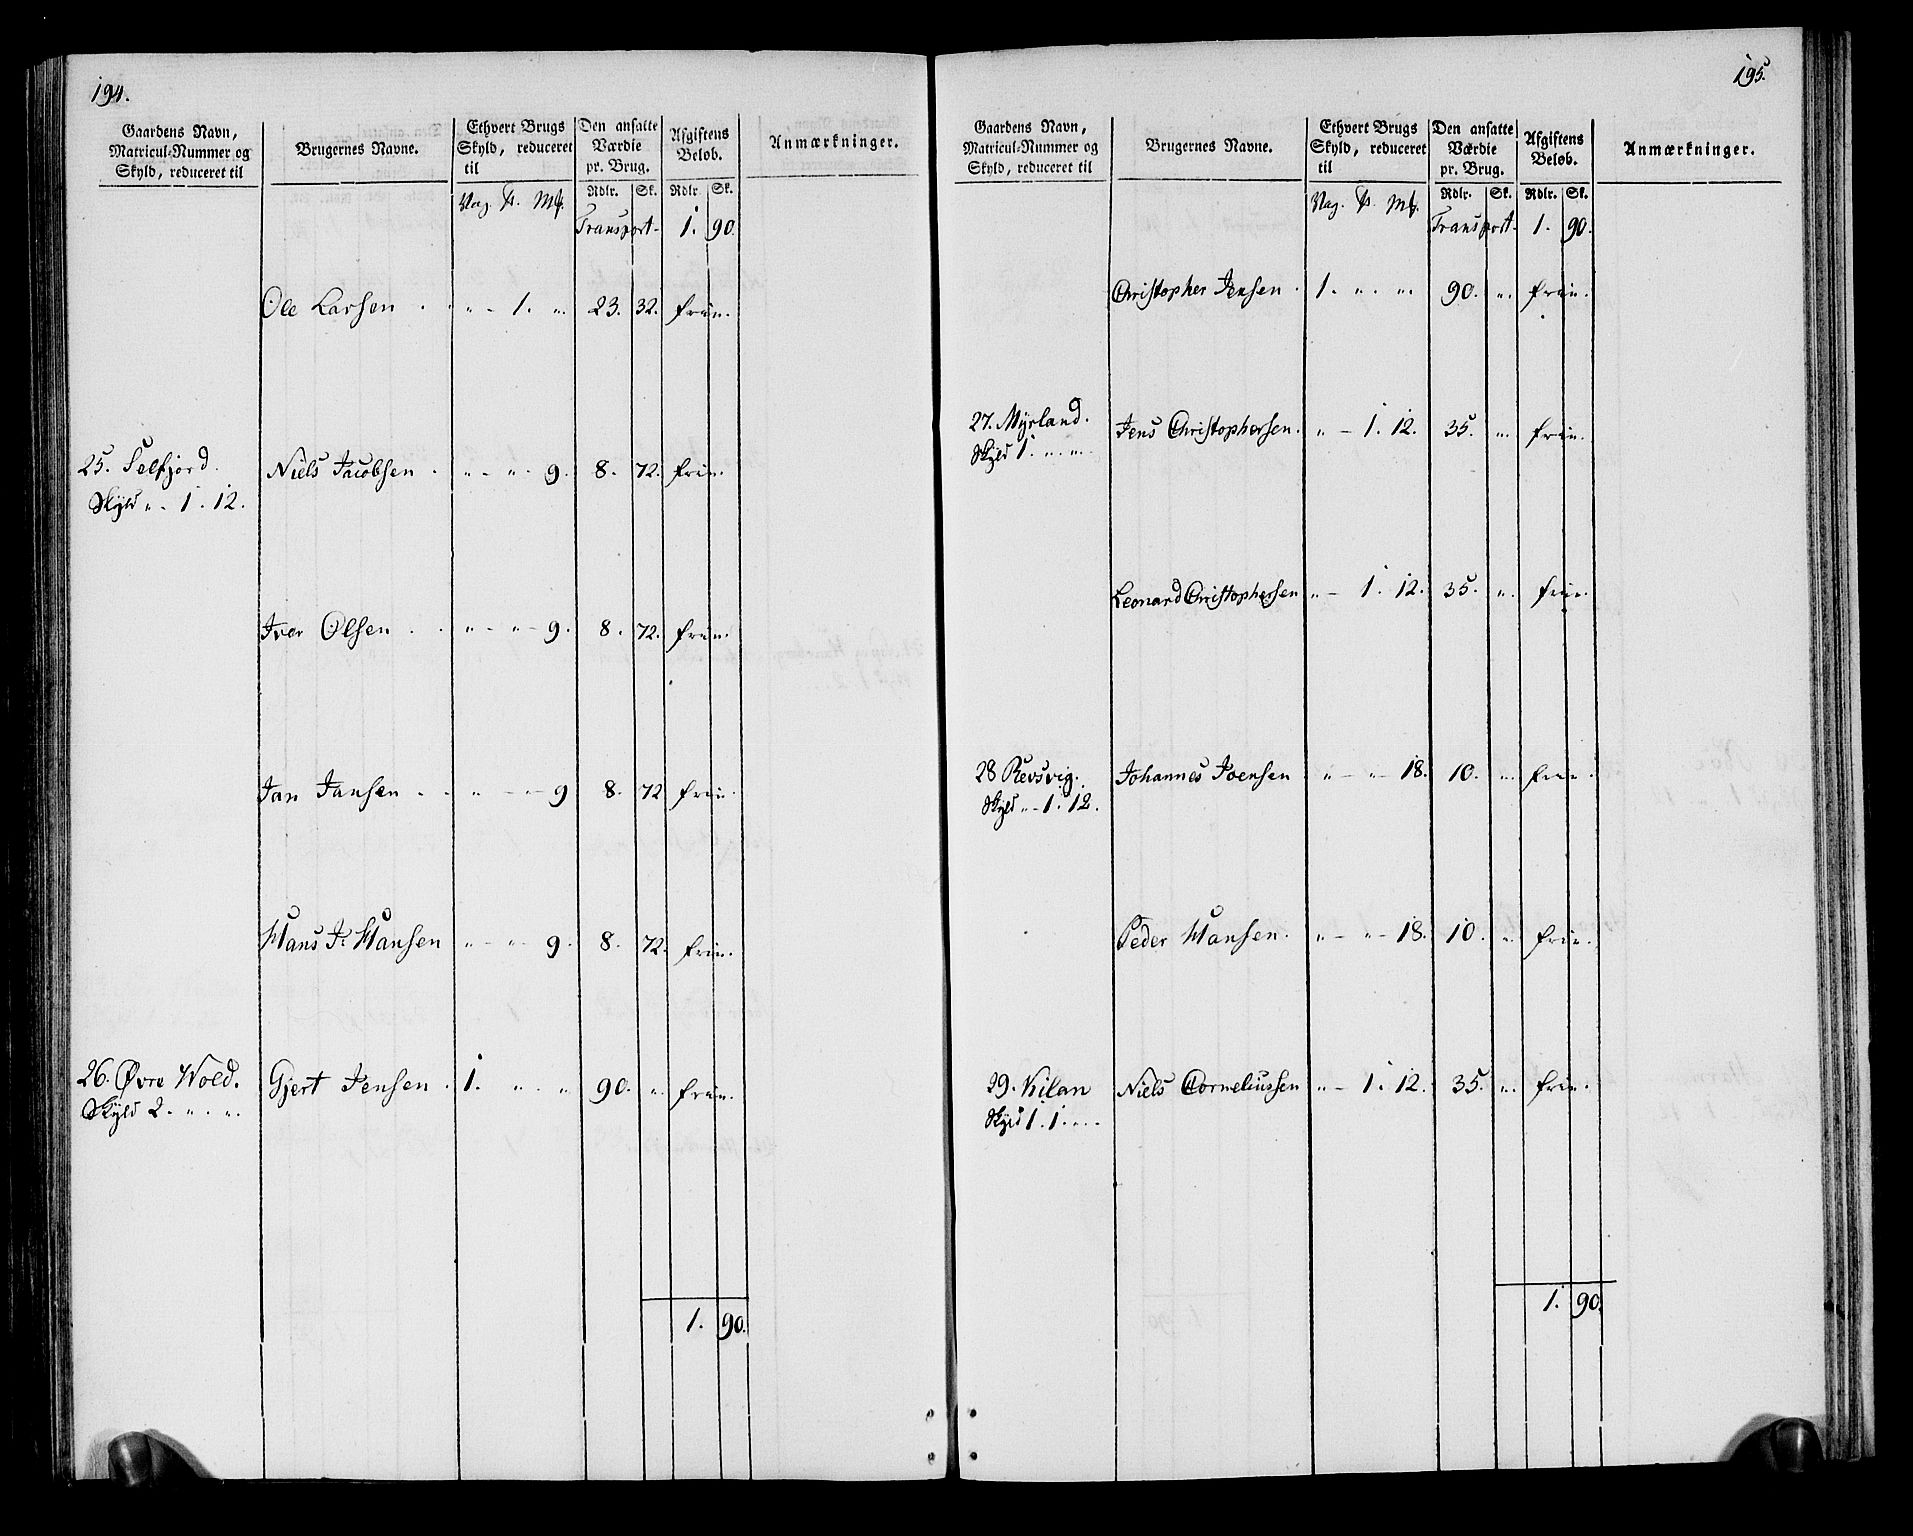 194.
Gaardens Navn, Matricul-Nummer og Skyld, reduceret til
Brugernes Navne.
Ethvert Brugs Skyld, reduceret til
Den ansatte Værdie pr. Brug.
Afgiftens Beløb.
Anmærkninger.
Vog. ℔. Mk. Rdlr. Sk. Rdlr. Sk.
Transport. 1. 90.
Ole Larsen . . „ - 1. „ 23. 32. frie.
25. Selfjord. Niels Jacobsen . „ - „ - 9. 8. 72. frie.
Skyld „ - 1. 12.
Iver Olsen . . „ - „ - 9. 8. 72. frie.
Jan Jansen . . „ - „ - 9 8. 72 frie.
Hans J. Hansen „ - „ - 9. 8. 72. frie.
26. Øvre Wold. Gjert Jensen . 1. „ „ 90. „ frie.
Skyld 2. „ „
1. 90.
195.
Gaardens Navn, Matricul-Nummer og Skyld, reduceret til
Brugernes Navne.
Ethvert Brugs Skyld, reduceret til
Den ansatte Værdie pr. Brug.
Afgiftens Beløb.
Anmærkninger.
Vog. ℔. Mk. Rdlr. Sk. Rdlr. Sk.
Transport. 1. 90.
Christopher Jensen . 1. „ „ 90. „ frie.
27. Myrland. Jens Christophersen. „ - 1. 12. 35. „ frie.
Skyld 1. „ „
Leonard Christophersen „ - 1. 12. 35. „ frie.
28 Revsvig. Johannes Joensen „ - „ - 18. 10. „ frie.
Skyld „ - 1. 12.
Peder Hansen. „ - „ - 18. 10. „ frie.
29. Kilan Niels Corneliussen „ - 1. 12. 35. „ frie.
Skyld 1. 1. „
1. 90.